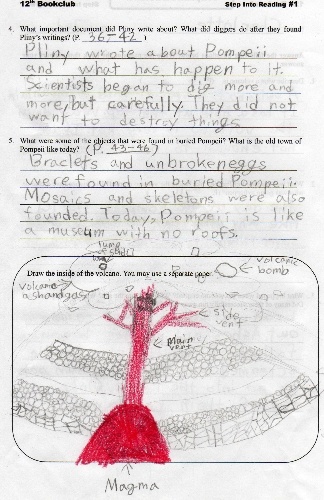 12th Bookclub
Step Into Reading #1
4. What important document did Pliny write about? What did diggers do after they found
Pliny's writings? (P. 36-42)
Pliny wrote about Pompeii
and what has happen to it.
Scientists began to dig more and
more, but carefully. They did not
want to destroy things
5. What were some of the objects that were found in buried Pompeii? What is the old town of
Pompeii like today? (P. 43-46)
Braclets and unbroken eggs
were found in buried Pompeii.
Mosaics and skeletons were also
founded. Today, Pompeii is like
a museum with no roofs.
Draw the inside of the volcano. You may use a separate paper.
volcanic
bomb
volcanic
ash and gas
side
vent
Main
vent
Magma